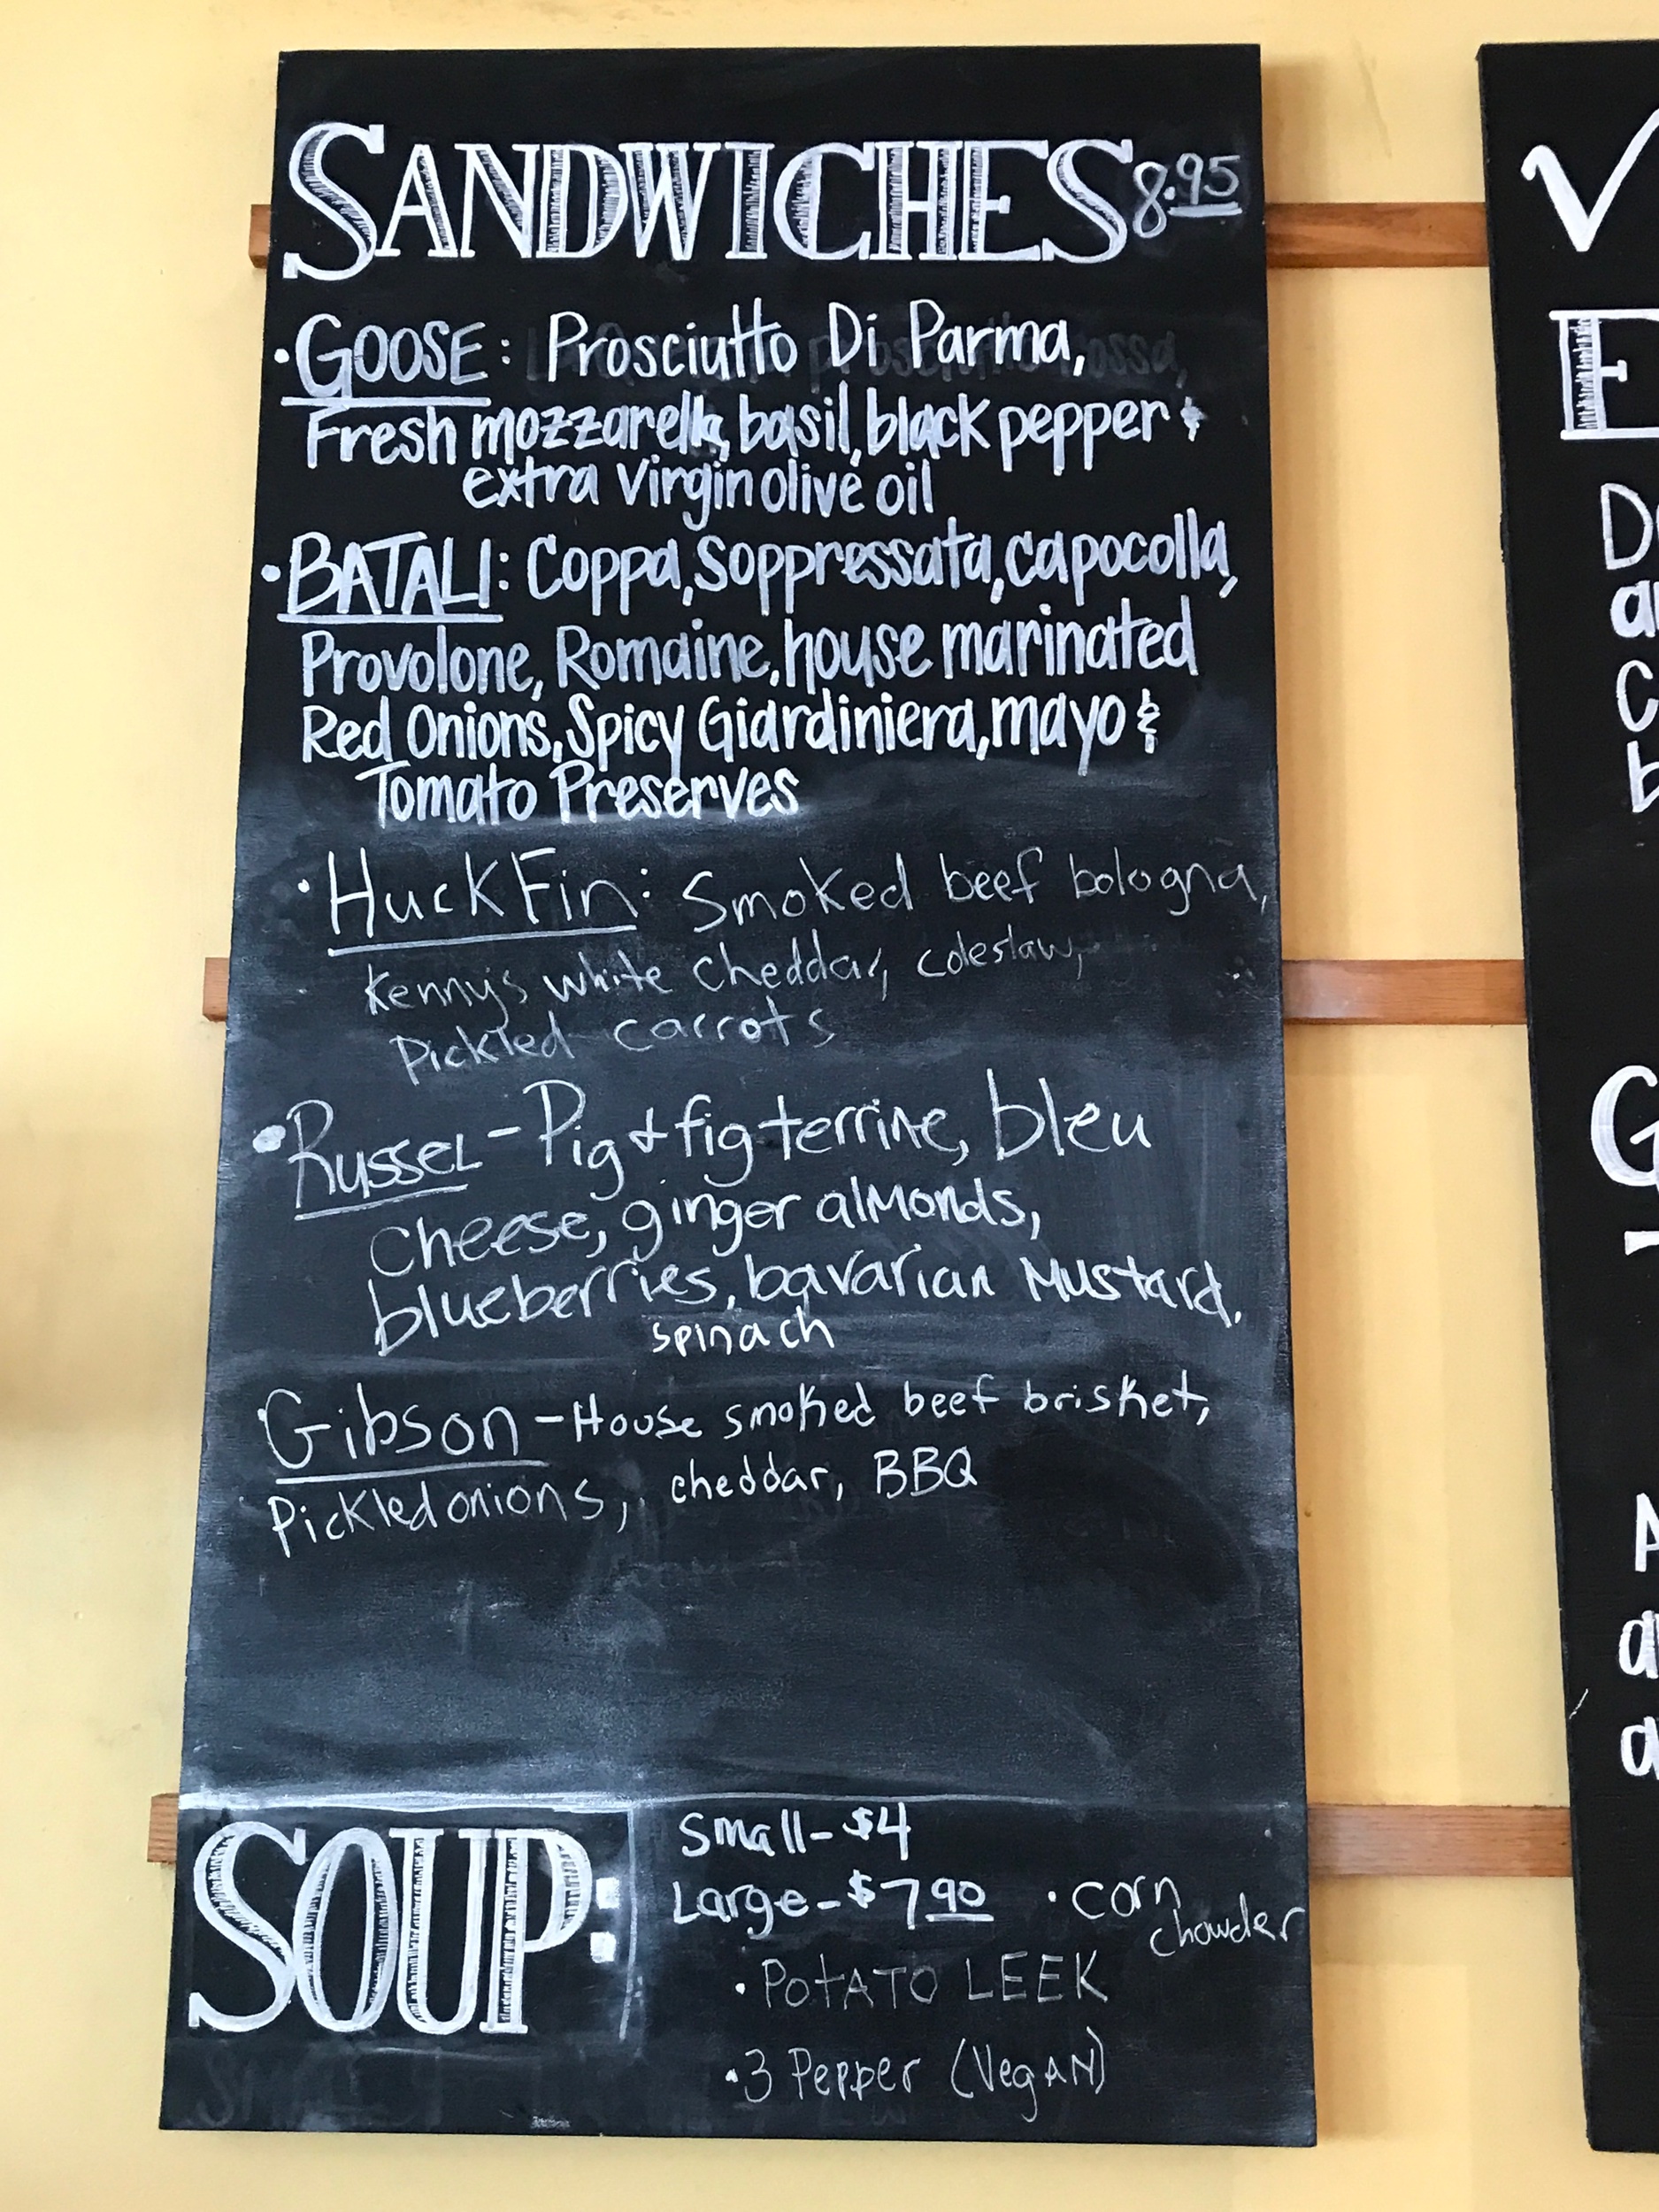 SANDWICHES 8.95
• GOOSE: Prosciutto Di Parma,
Fresh mozzarella, basil, black pepper &
extra virgin olive oil
• BATALI: Coppa, Soppressata, capocolla,
Provolone, Romaine, house marinated
Red Onions, Spicy Giardiniera, mayo &
Tomato Preserves
• Huck Fin: Smoked beef bologna,
Kenny's white cheddar, coleslaw,
Pickled carrots
• Russel - Pig & fig terrine, bleu
cheese, ginger almonds,
blueberries, bavarian Mustard.
spinach
• Gibson - House smoked beef brisket,
Pickled onions, cheddar, BBQ
SOUP:
Small - $4
Large - $7 90
• corn
chowder
• POTATO LEEK
• 3 Pepper (Vegan)